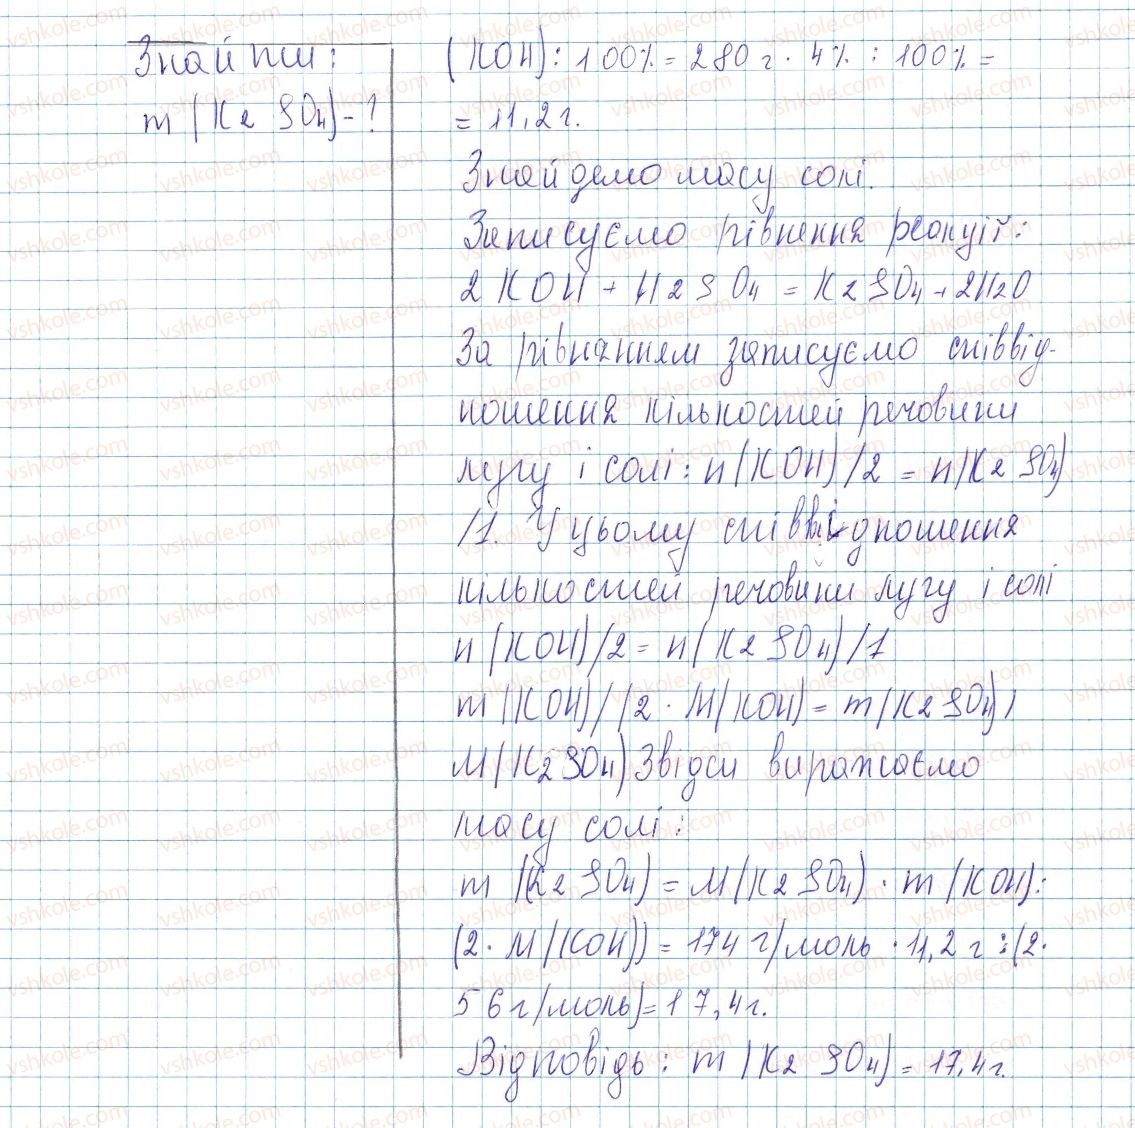 Знайти:
m (K2 SO4) - ?
(KOH) : 100% = 280 г · 4% : 100% =
= 11,2 г.
Знайдемо масу солі.
Записуємо рівнення реакції:
2 KOH + H2SO4 = K2SO4 + 2H2O
За рівнянням записуємо співвід-
ношення кількостей речовини
лугу і солі: n (KOH) /2 = n (K2 SO4)
/1. У цьому співвідношення
кількостей речовини лугу і солі
n (KOH) /2 = n (K2 SO4) /1
m (KOH) / (2 · M (KOH) = m (K2SO4) /
M (K2SO4) Звідси виражаємо
масу солі:
m (K2 SO4) = M (K2 SO4) · m (KOH) :
(2 · M (KOH)) = 174 г/моль · 11,2 г : (2 ·
56 г/моль) = 17,4 г.
Відповідь: m (K2 SO4) = 17,4 г.